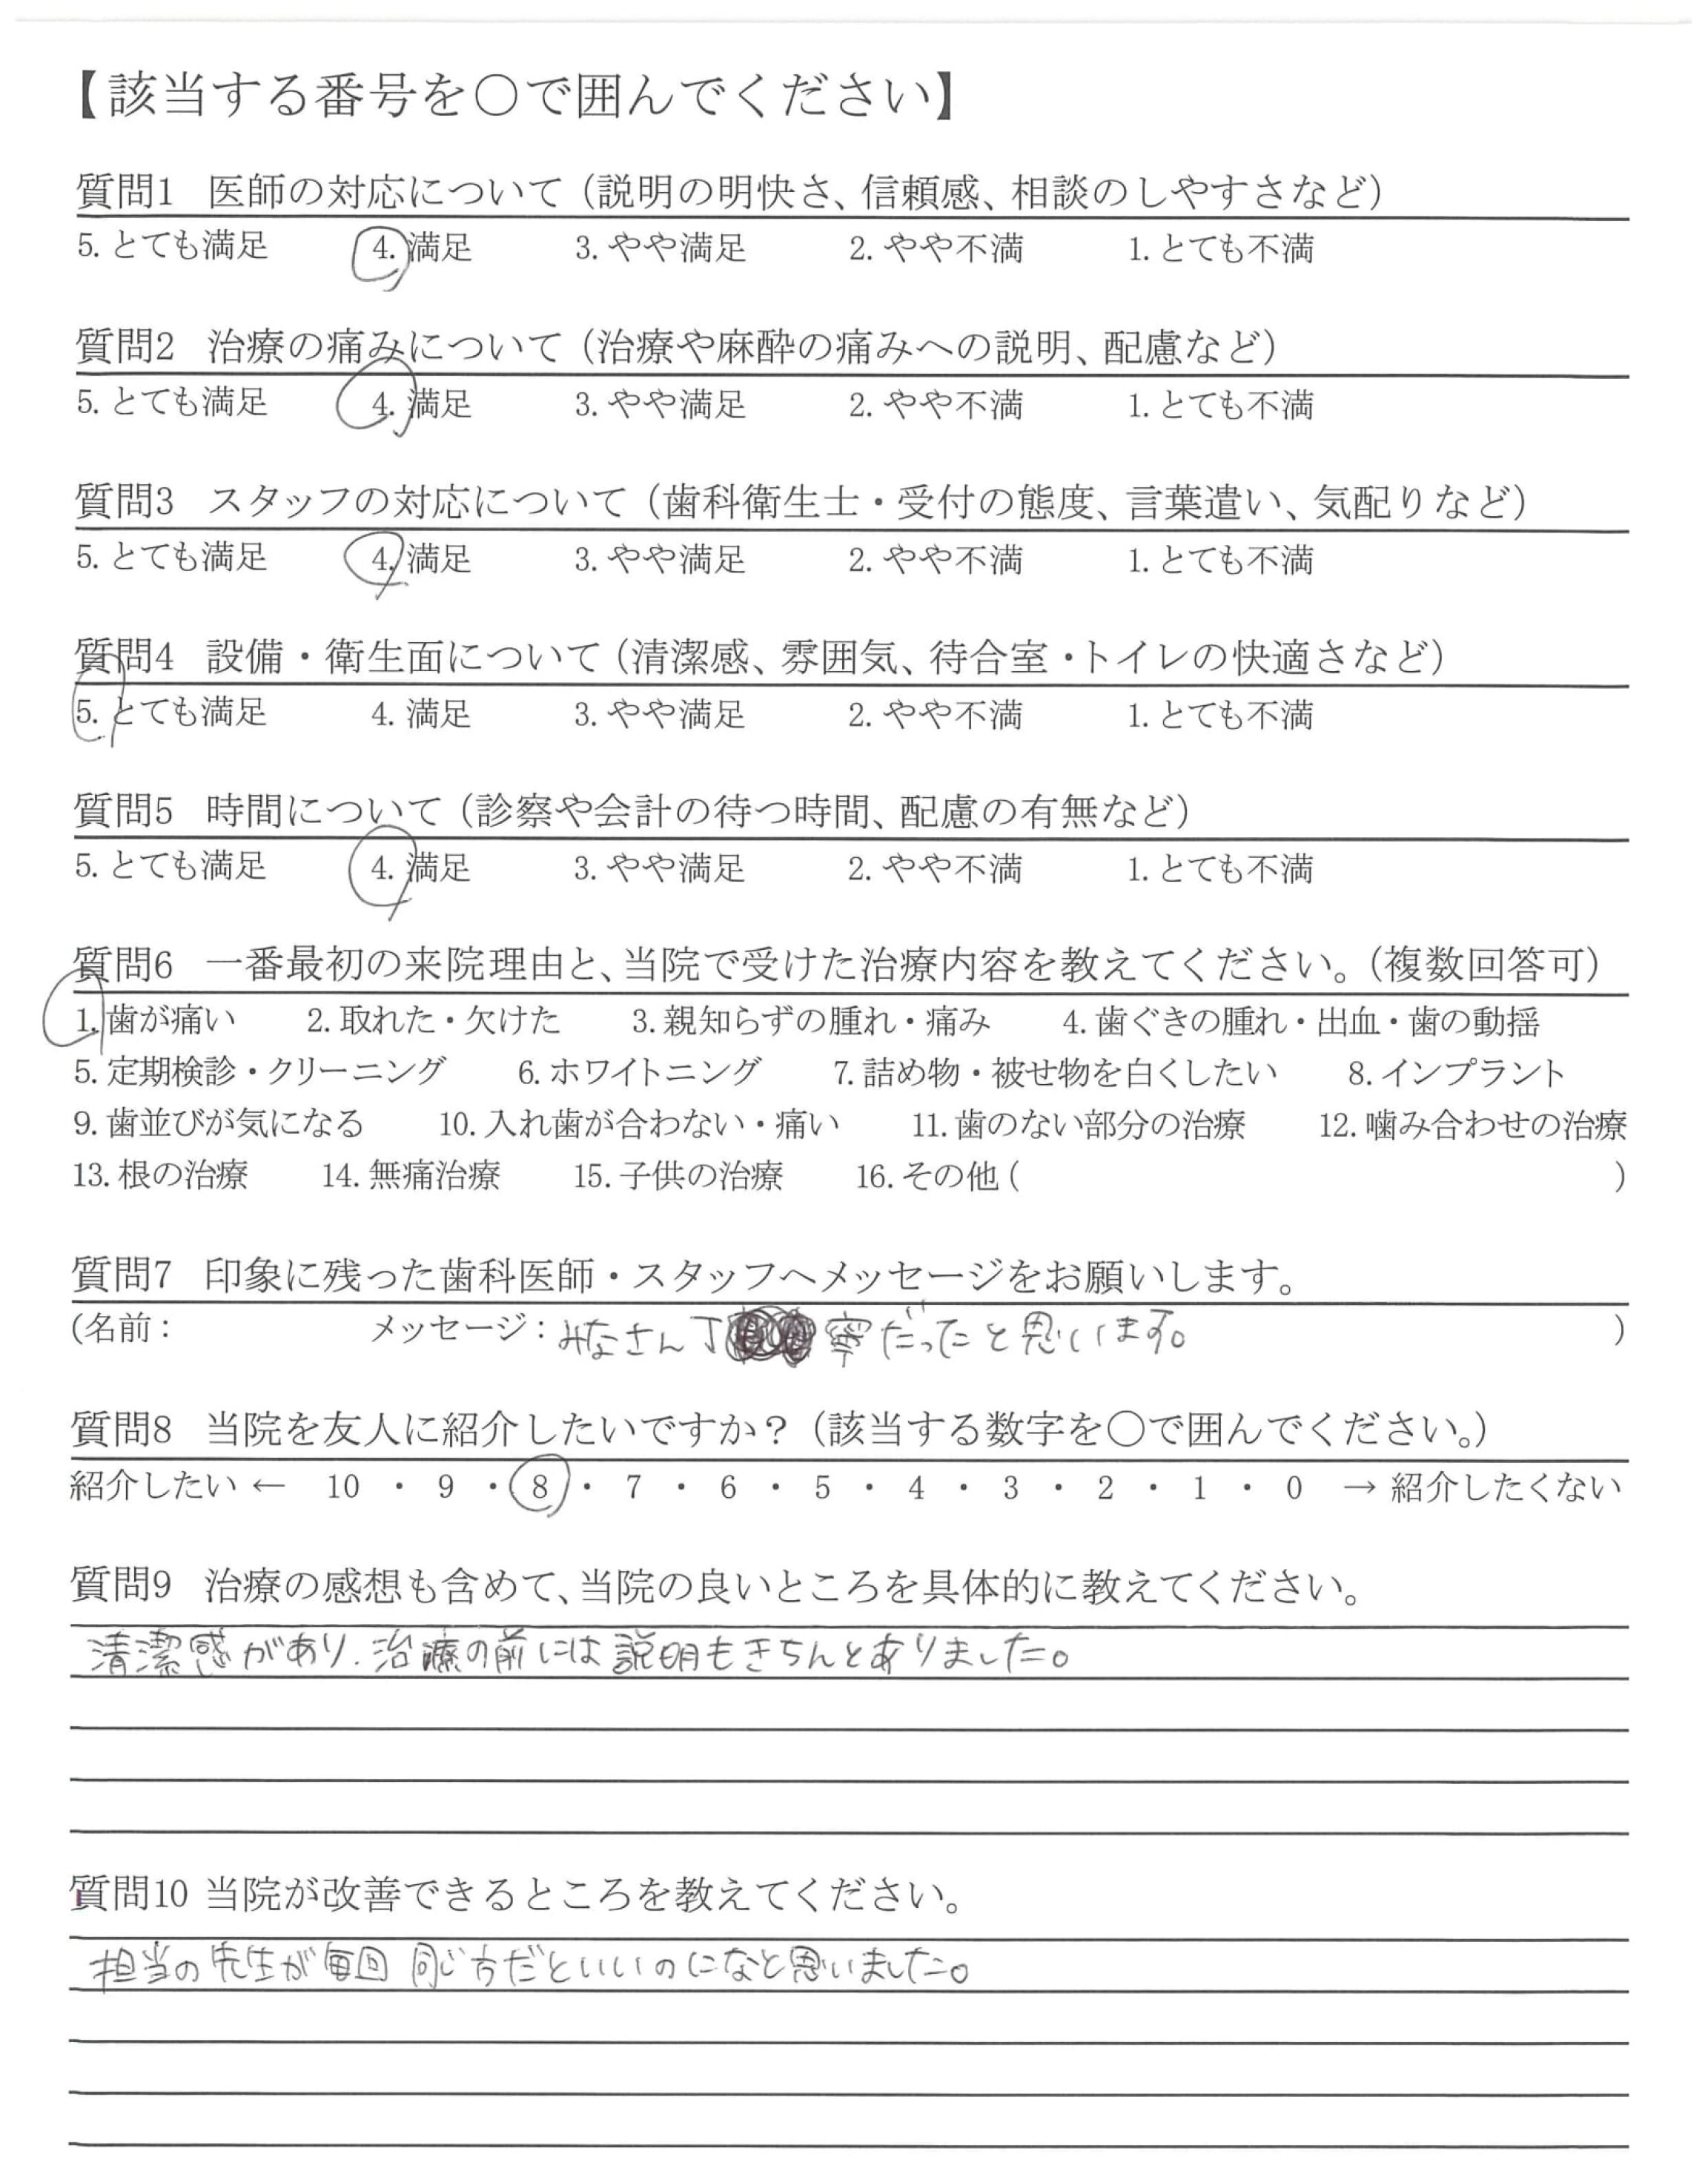 【該当する番号を〇で囲んでください】
質問1 医師の対応について（説明の明快さ、信頼感、相談のしやすさなど）
5. とても満足 4. 満足 3. やや満足 2. やや不満 1. とても不満
質問2 治療の痛みについて（治療や麻酔の痛みへの説明、配慮など）
5. とても満足 4. 満足 3. やや満足 2. やや不満 1. とても不満
質問3 スタッフの対応について（歯科衛生士・受付の態度、言葉遣い、気配りなど）
5. とても満足 4. 満足 3. やや満足 2. やや不満 1. とても不満
質問4 設備・衛生面について（清潔感、雰囲気、待合室・トイレの快適さなど）
5. とても満足 4. 満足 3. やや満足 2. やや不満 1. とても不満
質問5 時間について（診察や会計の待つ時間、配慮の有無など）
5. とても満足 4. 満足 3. やや満足 2. やや不満 1. とても不満
質問6 一番最初の来院理由と、当院で受けた治療内容を教えてください。（複数回答可）
1. 歯が痛い 2. 取れた・欠けた 3. 親知らずの腫れ・痛み 4. 歯ぐきの腫れ・出血・歯の動揺
5. 定期検診・クリーニング 6. ホワイトニング 7. 詰め物・被せ物を白くしたい 8. インプラント
9. 歯並びが気になる 10. 入れ歯が合わない・痛い 11. 歯のない部分の治療 12. 噛み合わせの治療
13. 根の治療 14. 無痛治療 15. 子供の治療 16. その他（ ）
質問7 印象に残った歯科医師・スタッフへメッセージをお願いします。
（名前： メッセージ：みなさん丁寧だったと思います。 ）
質問8 当院を友人に紹介したいですか？（該当する数字を〇で囲んでください。）
紹介したい ← 10 ・ 9 ・ 8 ・ 7 ・ 6 ・ 5 ・ 4 ・ 3 ・ 2 ・ 1 ・ 0 → 紹介したくない
質問9 治療の感想も含めて、当院の良いところを具体的に教えてください。
清潔感があり、治療の前には説明もきちんとありました。
質問10 当院が改善できるところを教えてください。
担当の先生が毎回同じ方だといいのになと思いました。